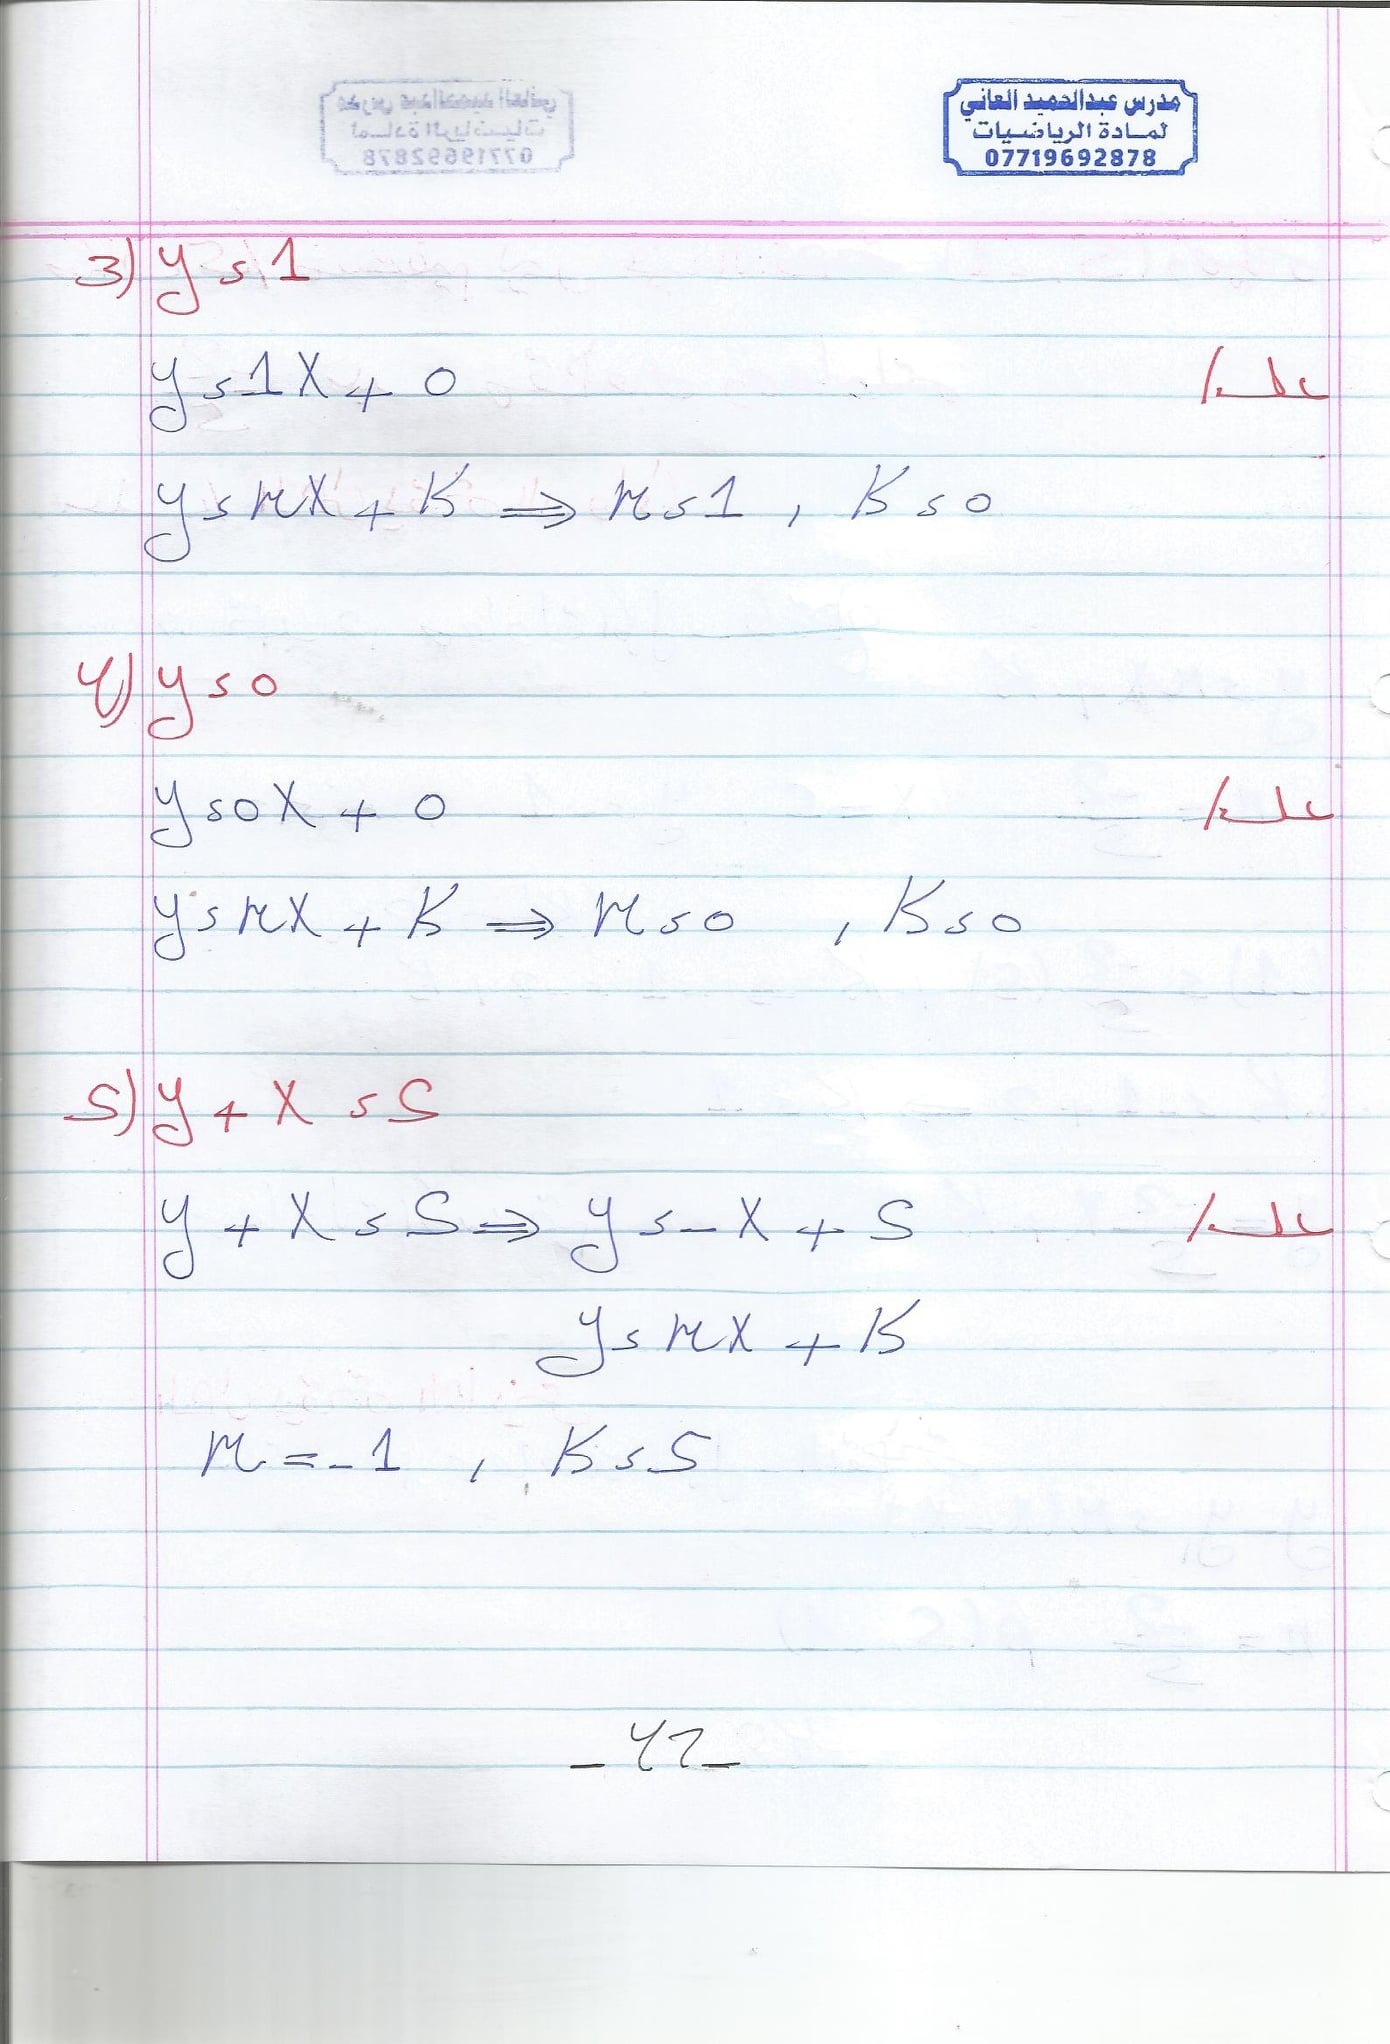 مدرس عبدالحميد العاني
لمادة الرياضيات
07719692878
3) y = 1
y = 1X + 0
y = mX + K ⇒ m = 1 , K = 0
4) y = 0
y = 0X + 0
y = mX + K ⇒ m = 0 , K = 0
5) y + X = 5
y + X = 5 ⇒ y = -X + 5
y = mX + K
m = -1 , K = 5